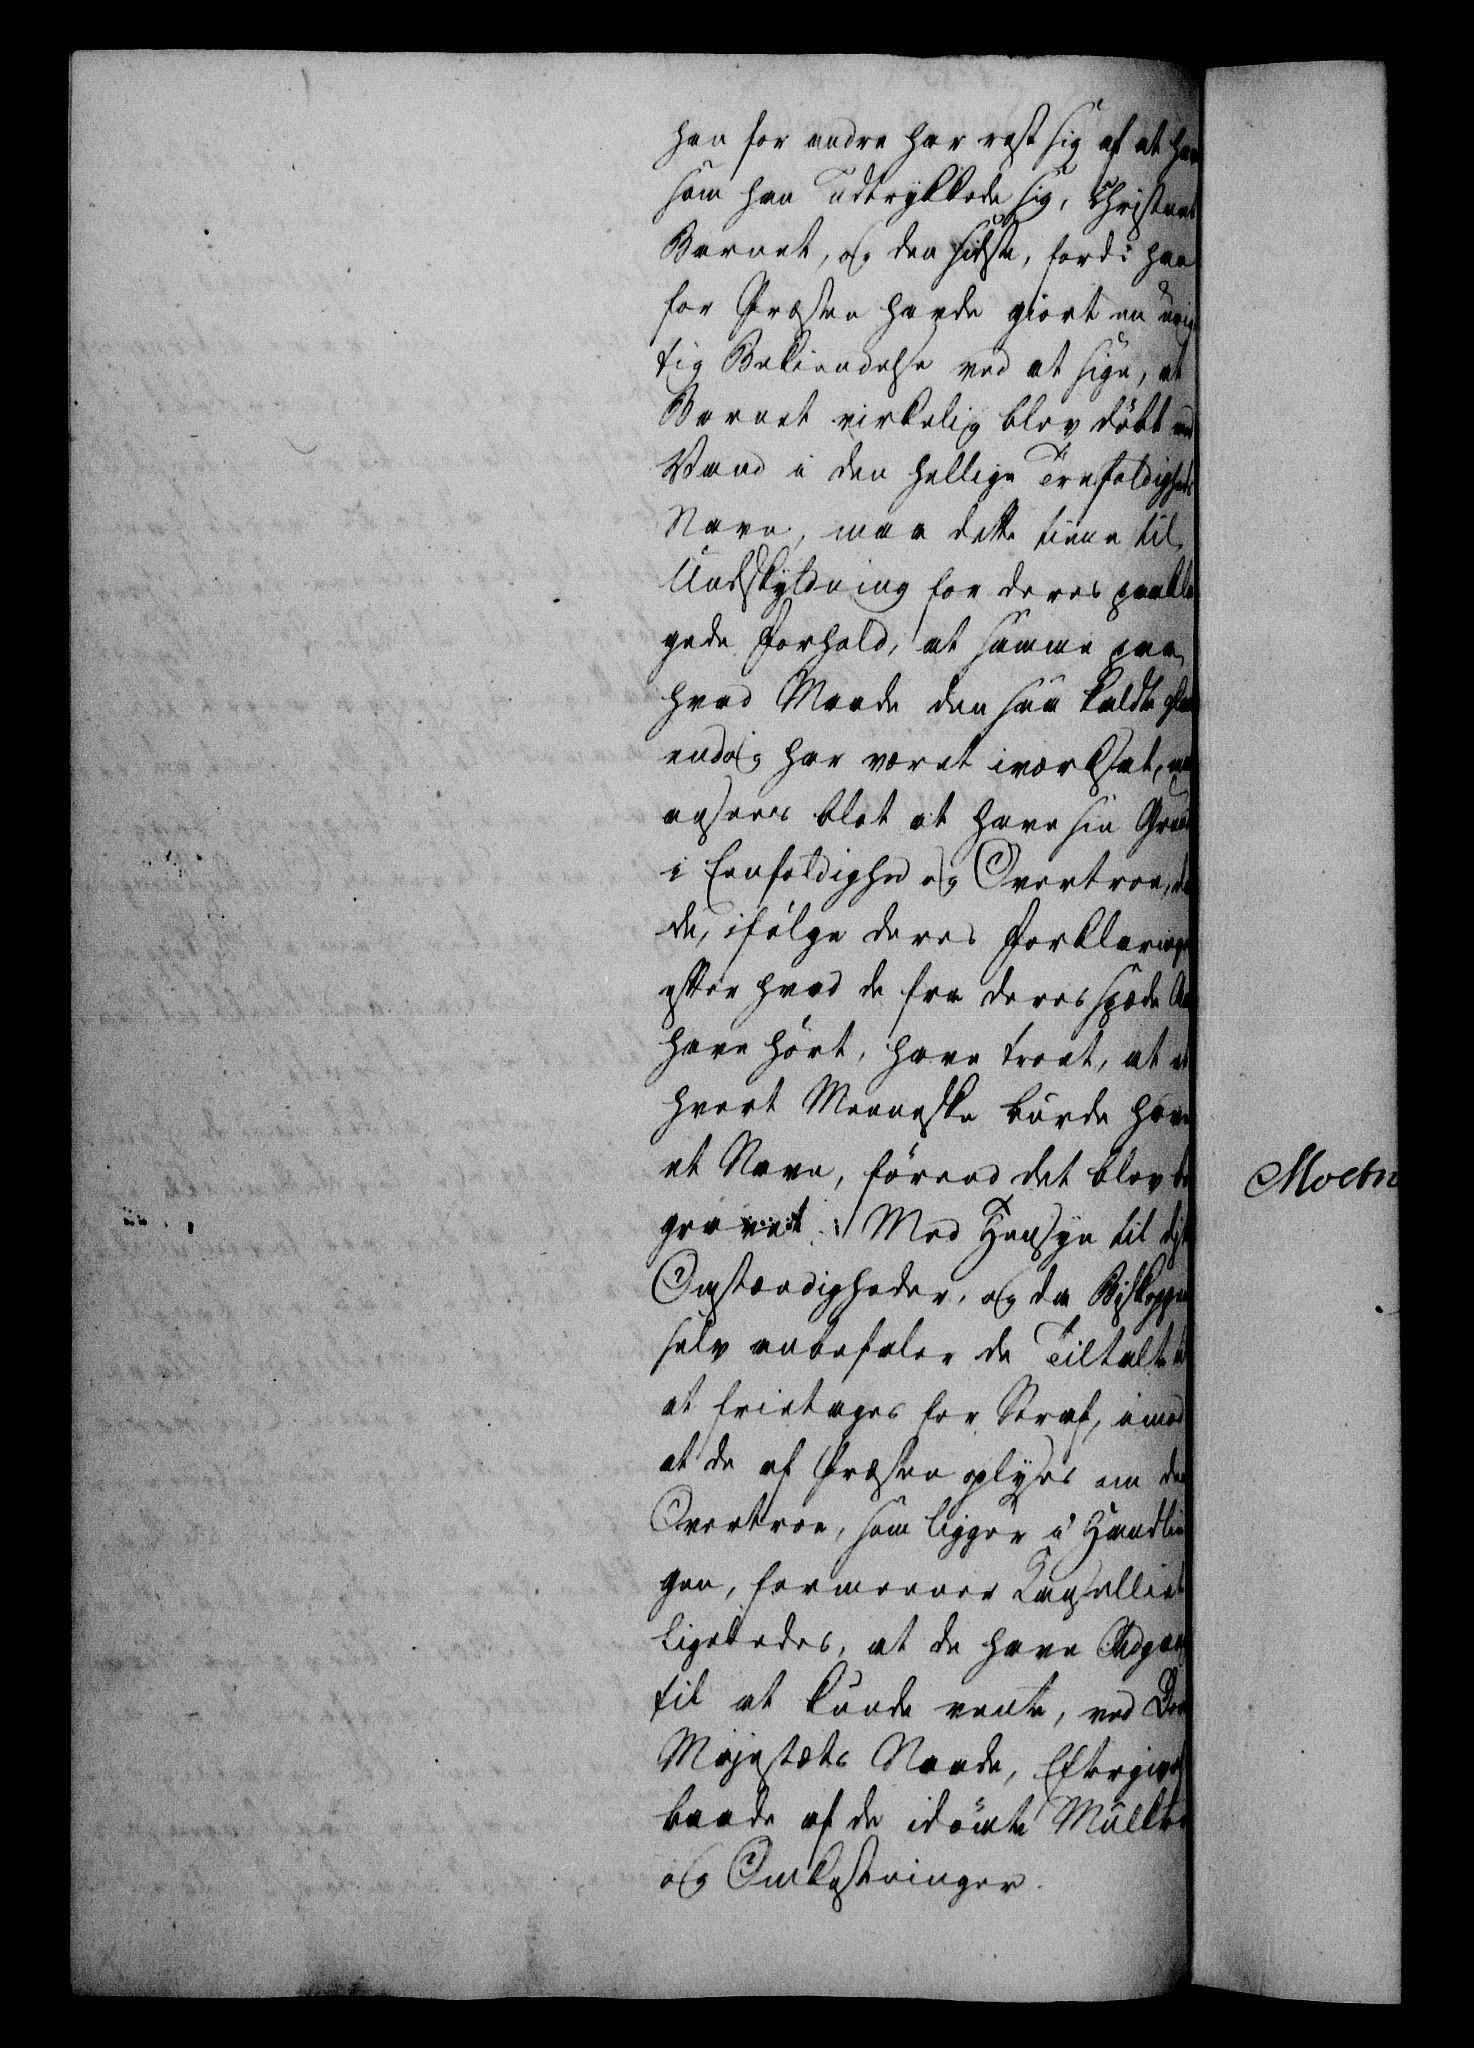 han for andre har rost sig af at hav
som han udtrykkede sig, Christnet
Barnet, og den sidste, fordi han
for Præsten havde giort en urig
tig Bekiendelse ved at sige, at
Barnet virkelig blev döbt med
Vand i den hellige Trefoldigheds
Navn, maa dette tiene til
Undskyldning for deres paakla
gede Forhold, at samme paa
hvad Maade den saa kaldte
endog har været iværksat, maa
ansees blot at have sin Grund
i Eenfoldighed og Overtroe, da
de, ifölge deres Forklaringer
efter hvad de fra deres spæde Aar
have hört, have troet, at et
hvert Menneske burde have
et Navn, förend det blev be
gravet. Med Hensyn til disse
Omstændigheder, og da Biskoppen
selv anbefaler de Tiltalte til
at fritages for Straf, imod
at de af Præsten oplyses om den
Overtroe, som ligger i Handlin
gen, formeener Cancelliet
ligeledes, at de have Adgang
til at kunde vente, ved Deres
Majestæts Naade, Eftergivelse
baade af de idömte Mulkter
og Omkostninger.